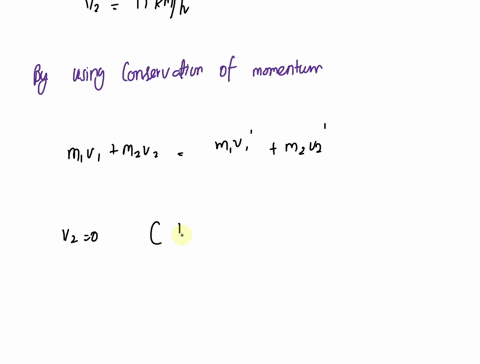 V2 = 
By using Conservation of momentum
m₁v₁ + m₂v₂ = m₁v₁' + m₂v₂'
v₂ = 0 (